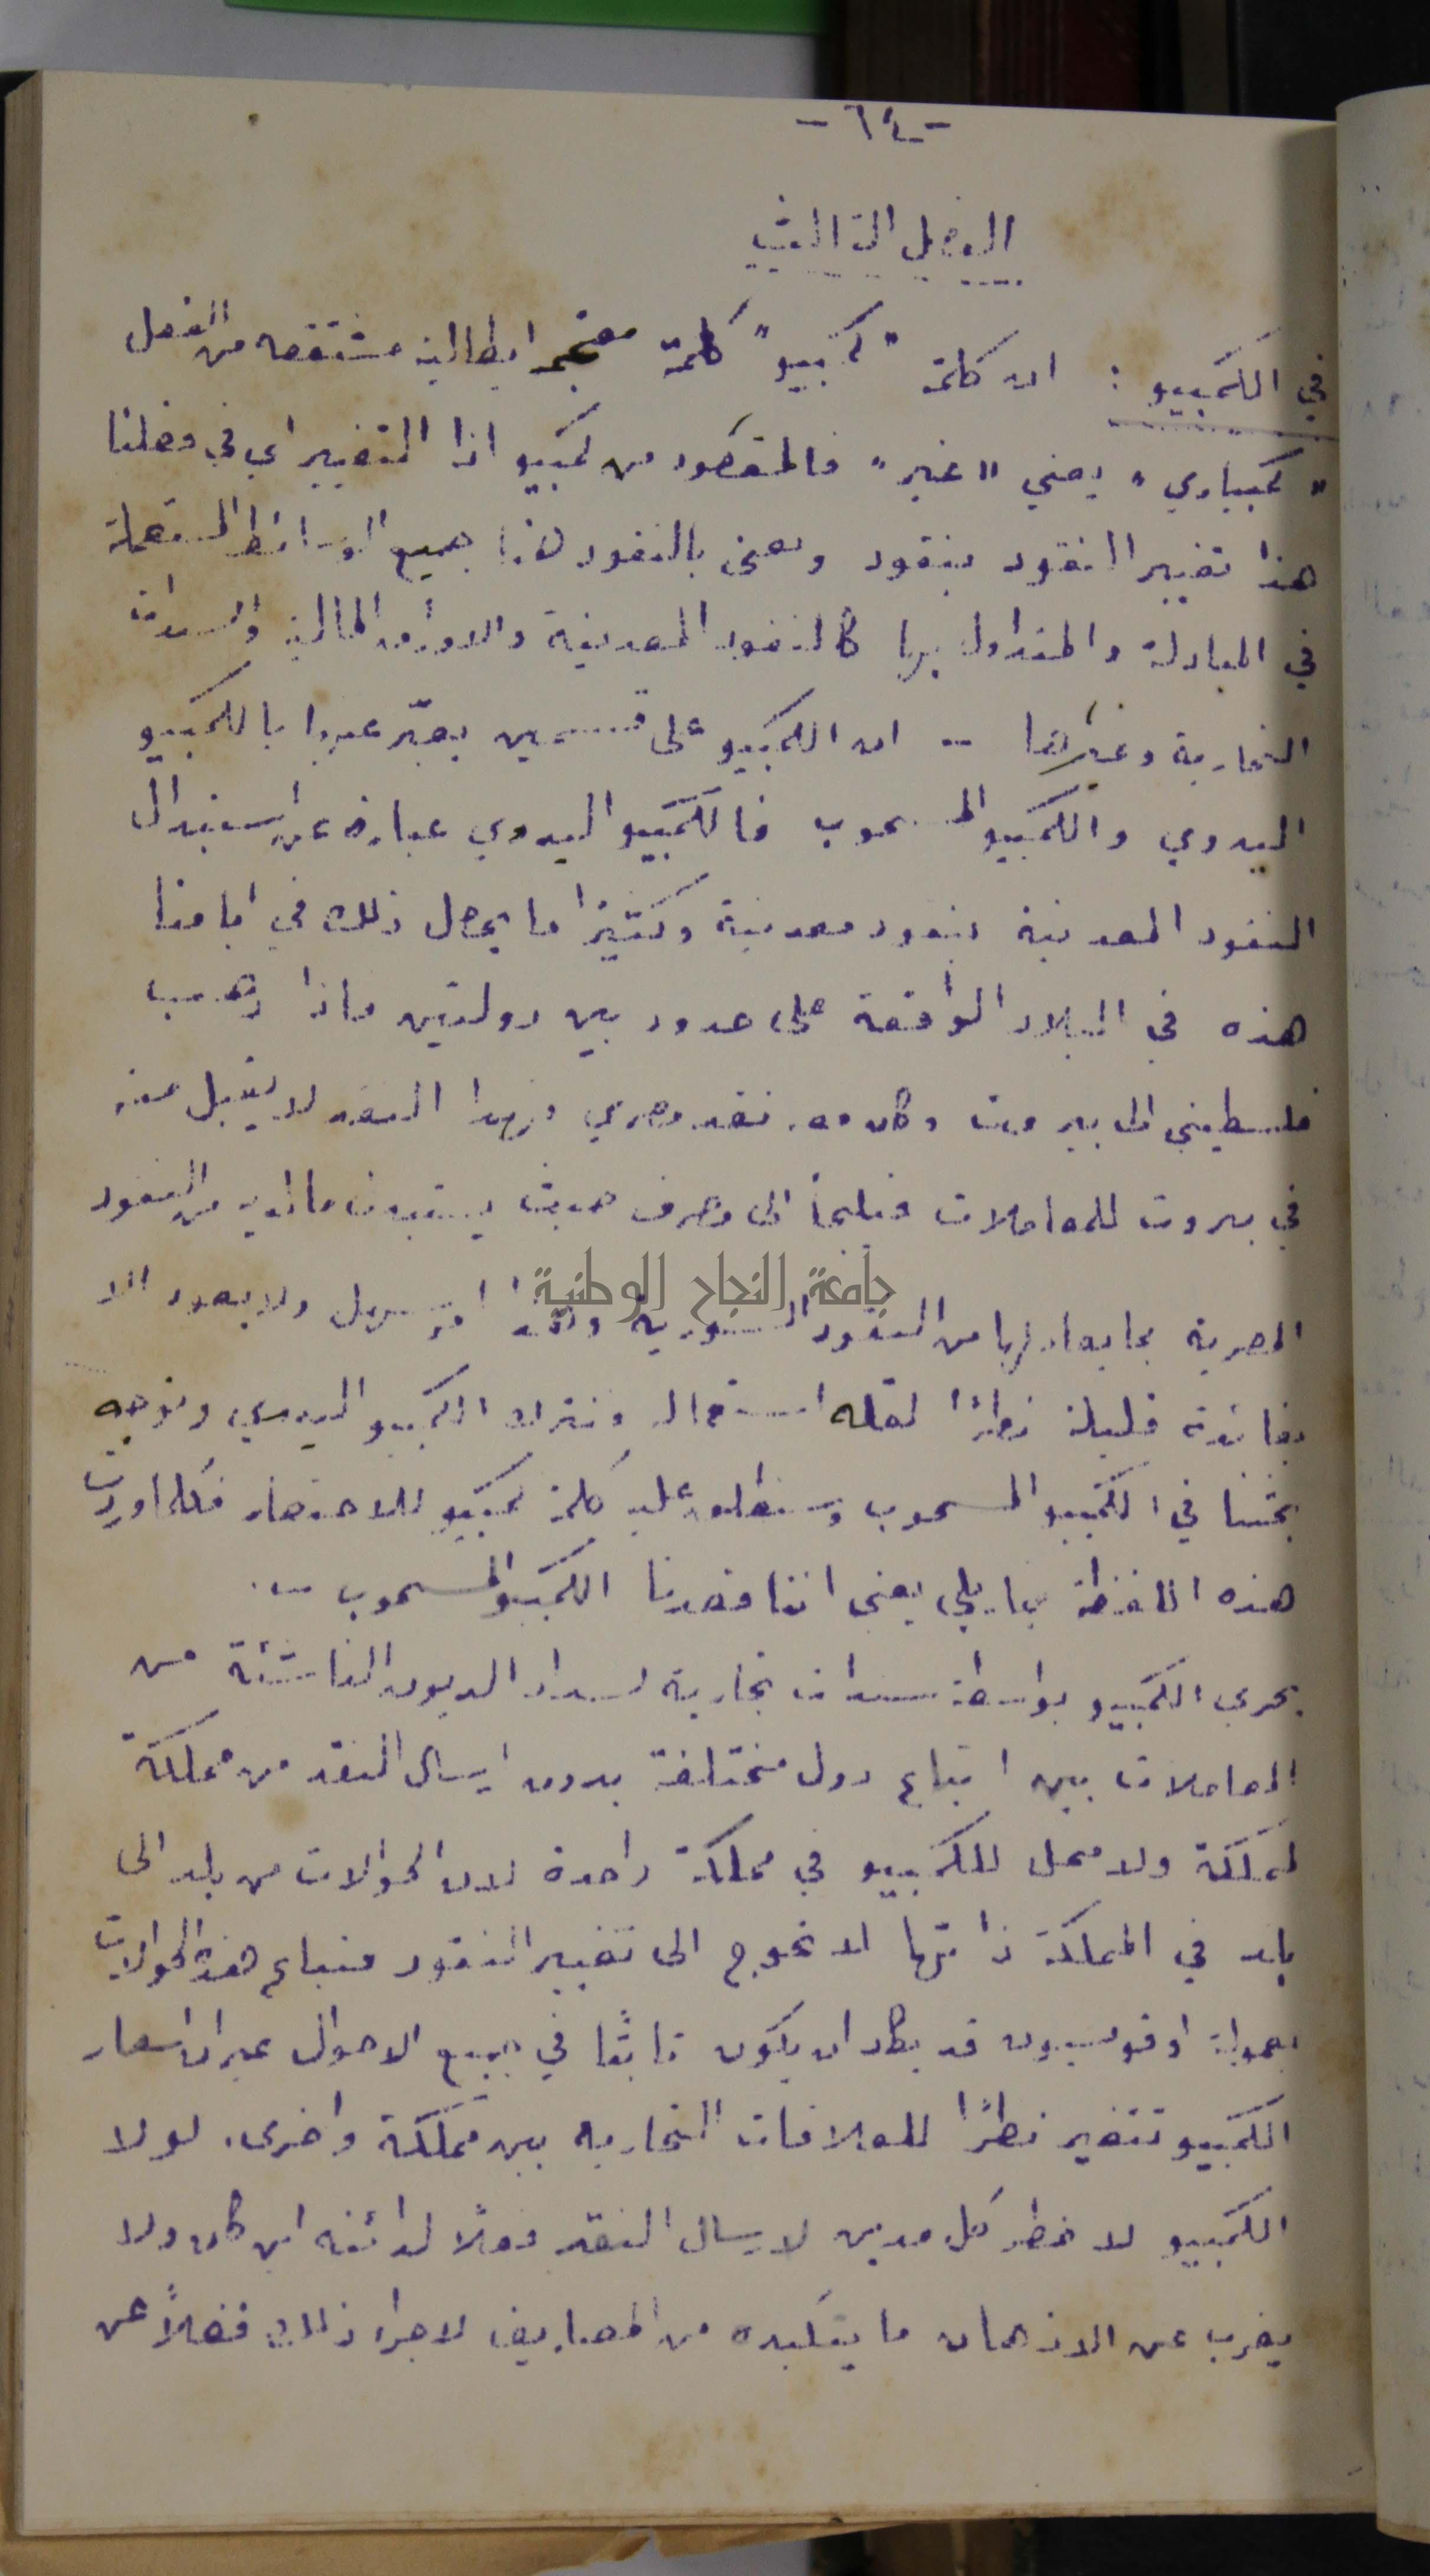 -٦٤-
الفصل الثالث
في الكمبيو : ان كلمة "كمبيو" كلمة ايطالية مشتقه من الفعل
"كمبياري" يعني "غير" فالمقصود من كمبيو اذا التغيير اي في فصلنا
هذا تغيير النقود بنقود ونعني بالنقود هنا جميع الوسائط المستعملة
في المبادلة والمتداول بها كالنقود المعدنية والاوراق المالية والسندات
التجارية وغيرها .. ان الكمبيو على قسمين يعبّر عنها بالكمبيو
اليدوي والكمبيو المسحوب فالكمبيو اليدوي عبارة عن استبدال
النقود المعدنية بنقود معدنية وكثيرا ما يحصل ذلك في ايامنا
هذه في البلاد الواقعة على حدود بين دولتين فاذا ذهب
فلسطيني الى بيروت وكان معه نقد مصري وهذا النقد لا يقبل منه
في بيروت للمعاملات فيلجأ الى مصرف حيث يستبدل ما لديه من النقود
المصرية بما يعادلها من النقود السورية وهذا امر سهل ولا يعود الا
بفائدة قليلة نظرًا لقلة استعماله ونترك الكمبيو اليدوي ونوجه
بحثنا في الكمبيو المسحوب وسنطلق عليه كلمة كمبيو للاختصار فكلما وردت
هذه اللفظة بما يلي يعني اننا قصدنا الكمبيو المسحوب ..
يجري الكمبيو بواسطة سندات تجارية لسداد الديون الناشئة من
المعاملات بين اتباع دول مختلفة بدون ارسال النقد من مملكة
لمملكة ولا محل للكمبيو في مملكة واحدة لان الحوالات من بلد الى
بلد في المملكة ذاتها لا تحوج الى تغيير النقود فتباع هذه الحوالات
بعمولة او قومسيون قد يكاد ان يكون ثابتًا في جميع الاحوال غير ان اسعار
الكمبيو تتغير نظرًا للعلاقات التجاريه بين مملكة واخرى. لولا
الكمبيو لاضطر كل مدين لارسال النقد فعلًا لدائنه اين كان ولا
يغرب عن الاذهان ما يتكبده من المصاريف لاجراء ذلك فضلًا عن
جامعة النجاح الوطنية